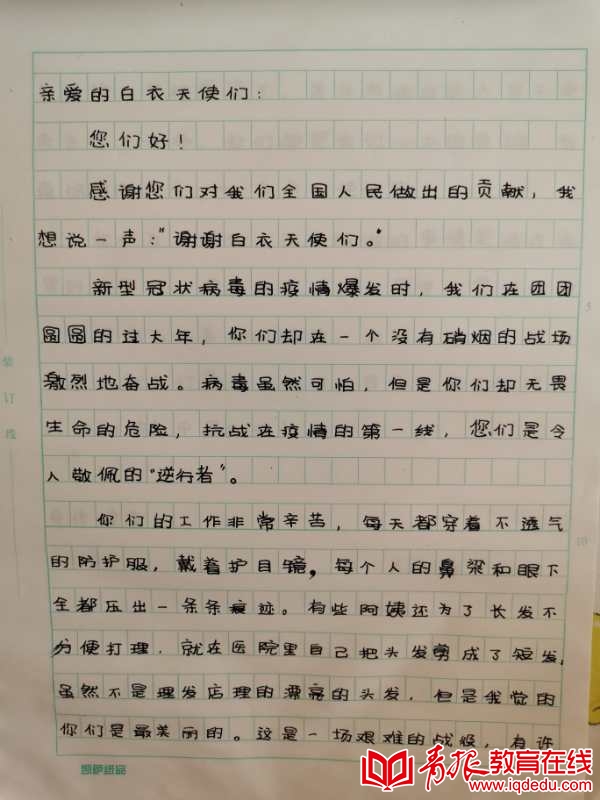 亲爱的白衣天使们：
您们好！
感谢您们对我们全国人民做出的贡献，我
想说一声：“谢谢白衣天使们。”
新型冠状病毒的疫情爆发时，我们在团团
圆圆的过大年，你们却在一个没有硝烟的战场
激烈地奋战。病毒虽然可怕，但是你们却无畏
生命的危险，抗战在疫情的第一线，您们是令
人敬佩的“逆行者”。
你们的工作非常辛苦，每天都穿着不透气
的防护服，戴着护目镜，每个人的鼻梁和眼下
全都压出一条条痕迹。有些阿姨还为了长发不
方便打理，就在医院里自己把头发剪成了短发，
虽然不是理发店理的漂亮的头发，但是我觉的
你们是最美丽的。这是一场艰难的战役，有许
装订线
5
10
凯萨纸品
青报教育在线
www.iqdedu.com